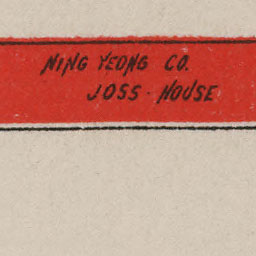 NING YEONG CO.
JOSS HOUSE